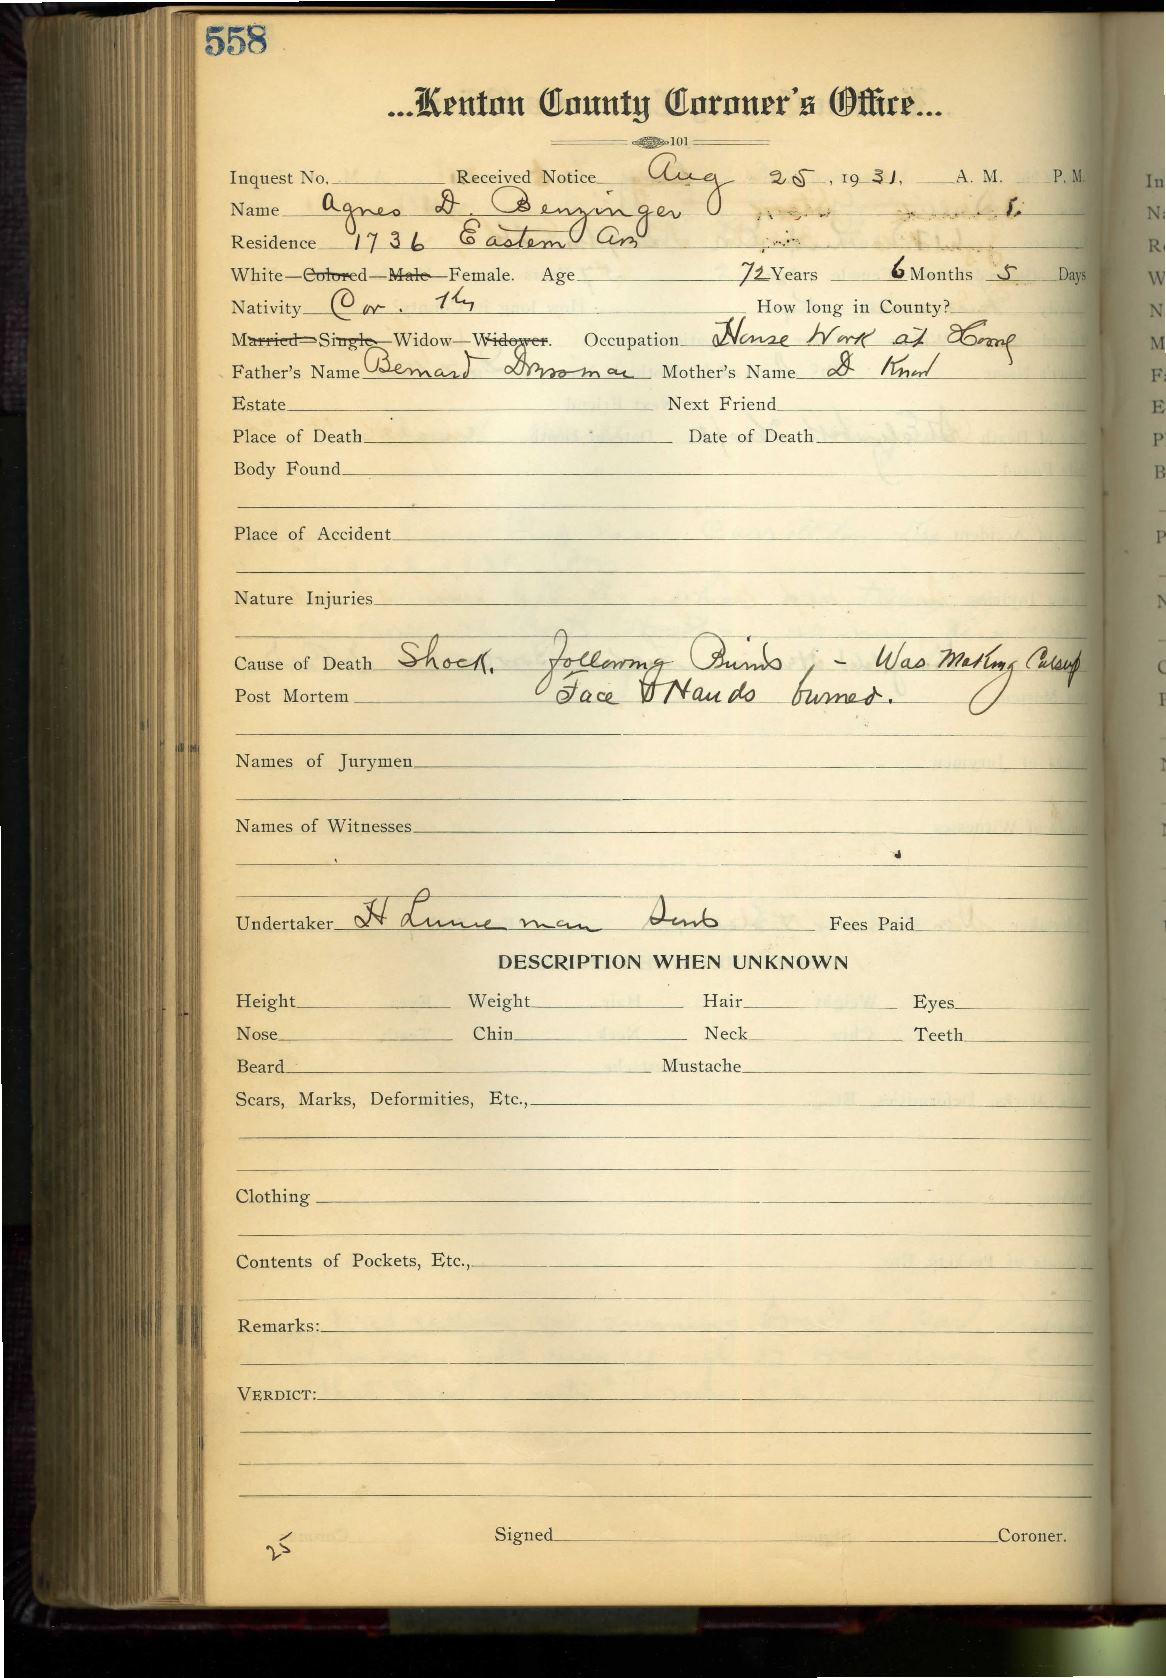 558
...Kenton County Coroner's Office...
101
Inquest No. Received Notice Aug 25, 1931, A. M. P. M.
Name Agnes D. Benzinger
Residence 1736 Eastern Av
White—Colored—Male—Female. Age 72 Years 6 Months 5 Days
Nativity Cov. Ky How long in County?
Married—Single—Widow—Widower. Occupation House Work at Home
Father's Name Bernard Mother's Name D Know
Estate Next Friend
Place of Death Date of Death
Body Found
Place of Accident
Nature Injuries
Cause of Death Shock. following Burns, - Was Making Catsup
Post Mortem Face & Hands burned.
Names of Jurymen
Names of Witnesses
Undertaker H Sons Fees Paid
DESCRIPTION WHEN UNKNOWN
Height Weight Hair Eyes
Nose Chin Neck Teeth
Beard Mustache
Scars, Marks, Deformities, Etc.,
Clothing
Contents of Pockets, Etc.,
Remarks:
VERDICT:
Signed Coroner.
25